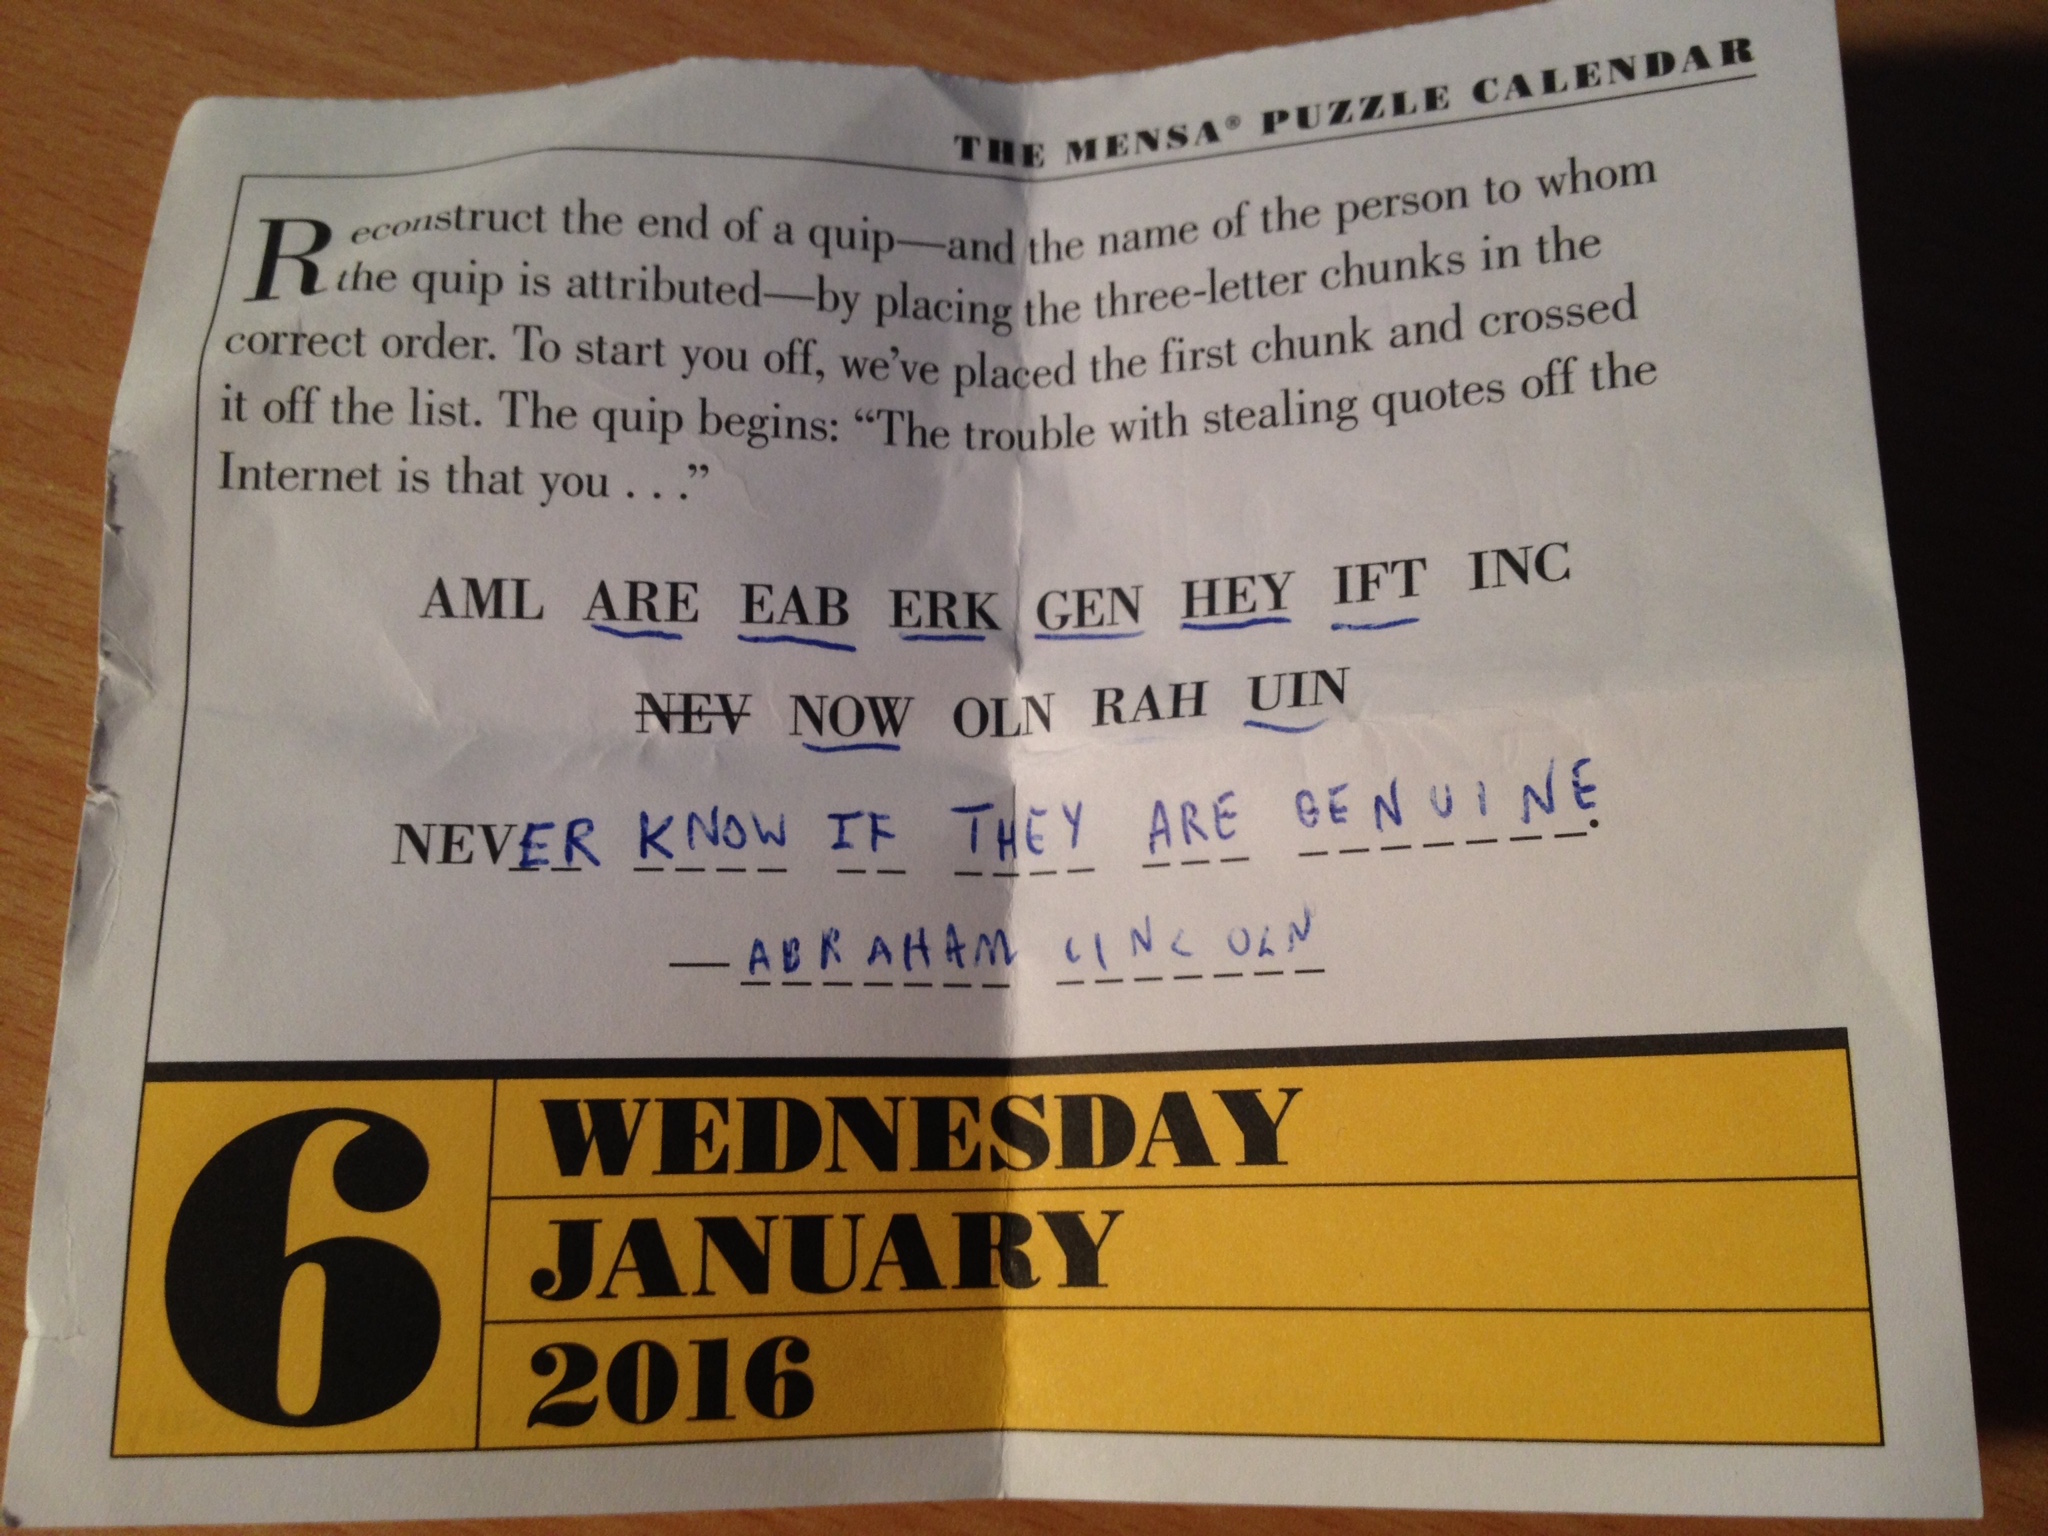 THE MENSA® PUZZLE CALENDAR
Reconstruct the end of a quip—and the name of the person to whom
the quip is attributed—by placing the three-letter chunks in the
correct order. To start you off, we've placed the first chunk and crossed
it off the list. The quip begins: “The trouble with stealing quotes off the
Internet is that you . . .”
AML ARE EAB ERK GEN HEY IFT INC
NEV NOW OLN RAH UIN
NEVER KNOW IF THEY ARE GENUINE.
—ABRAHAM LINCOLN
6 WEDNESDAY
JANUARY
2016